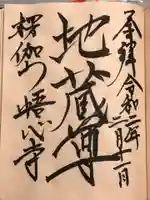 奉拝 令和二年二月十一日
地蔵尊
楞伽山 悟心寺